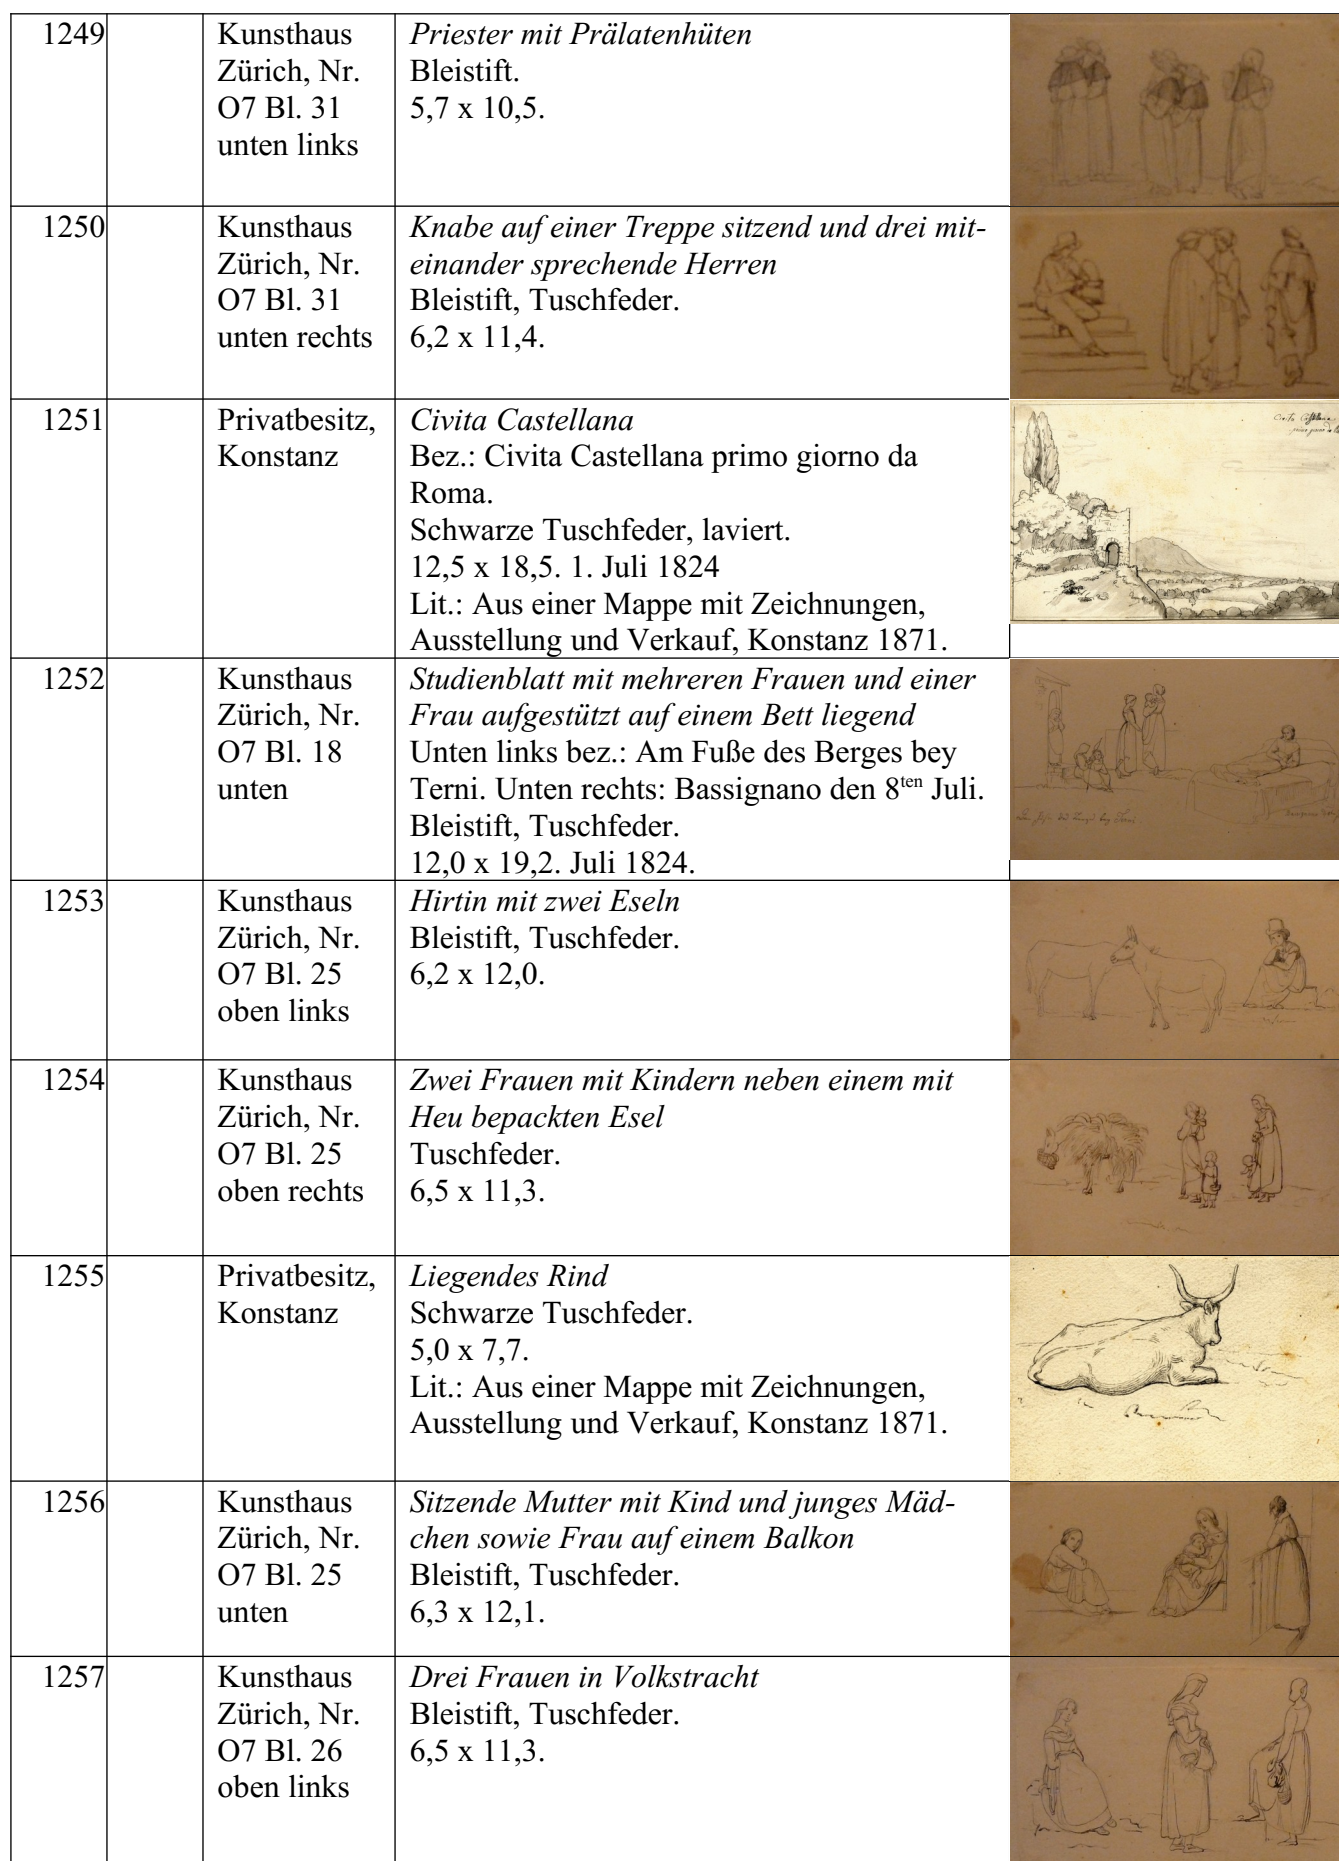 1249
Kunsthaus
Zürich, Nr.
O7 Bl. 31
unten links
Priester mit Prälatenhüten
Bleistift.
5,7 x 10,5.
1250
Kunsthaus
Zürich, Nr.
O7 Bl. 31
unten rechts
Knabe auf einer Treppe sitzend und drei mit-
einander sprechende Herren
Bleistift, Tuschfeder.
6,2 x 11,4.
1251
Privatbesitz,
Konstanz
Civita Castellana
Bez.: Civita Castellana primo giorno da
Roma.
Schwarze Tuschfeder, laviert.
12,5 x 18,5. 1. Juli 1824
Lit.: Aus einer Mappe mit Zeichnungen,
Ausstellung und Verkauf, Konstanz 1871.
Civita Castellana
primo giorno da
1252
Kunsthaus
Zürich, Nr.
O7 Bl. 18
unten
Studienblatt mit mehreren Frauen und einer
Frau aufgestützt auf einem Bett liegend
Unten links bez.: Am Fuße des Berges bey
Terni. Unten rechts: Bassignano den 8ten Juli.
Bleistift, Tuschfeder.
12,0 x 19,2. Juli 1824.
Am Fuße des Berges bey Terni
1253
Kunsthaus
Zürich, Nr.
O7 Bl. 25
oben links
Hirtin mit zwei Eseln
Bleistift, Tuschfeder.
6,2 x 12,0.
1254
Kunsthaus
Zürich, Nr.
O7 Bl. 25
oben rechts
Zwei Frauen mit Kindern neben einem mit
Heu bepackten Esel
Tuschfeder.
6,5 x 11,3.
1255
Privatbesitz,
Konstanz
Liegendes Rind
Schwarze Tuschfeder.
5,0 x 7,7.
Lit.: Aus einer Mappe mit Zeichnungen,
Ausstellung und Verkauf, Konstanz 1871.
1256
Kunsthaus
Zürich, Nr.
O7 Bl. 25
unten
Sitzende Mutter mit Kind und junges Mäd-
chen sowie Frau auf einem Balkon
Bleistift, Tuschfeder.
6,3 x 12,1.
1257
Kunsthaus
Zürich, Nr.
O7 Bl. 26
oben links
Drei Frauen in Volkstracht
Bleistift, Tuschfeder.
6,5 x 11,3.